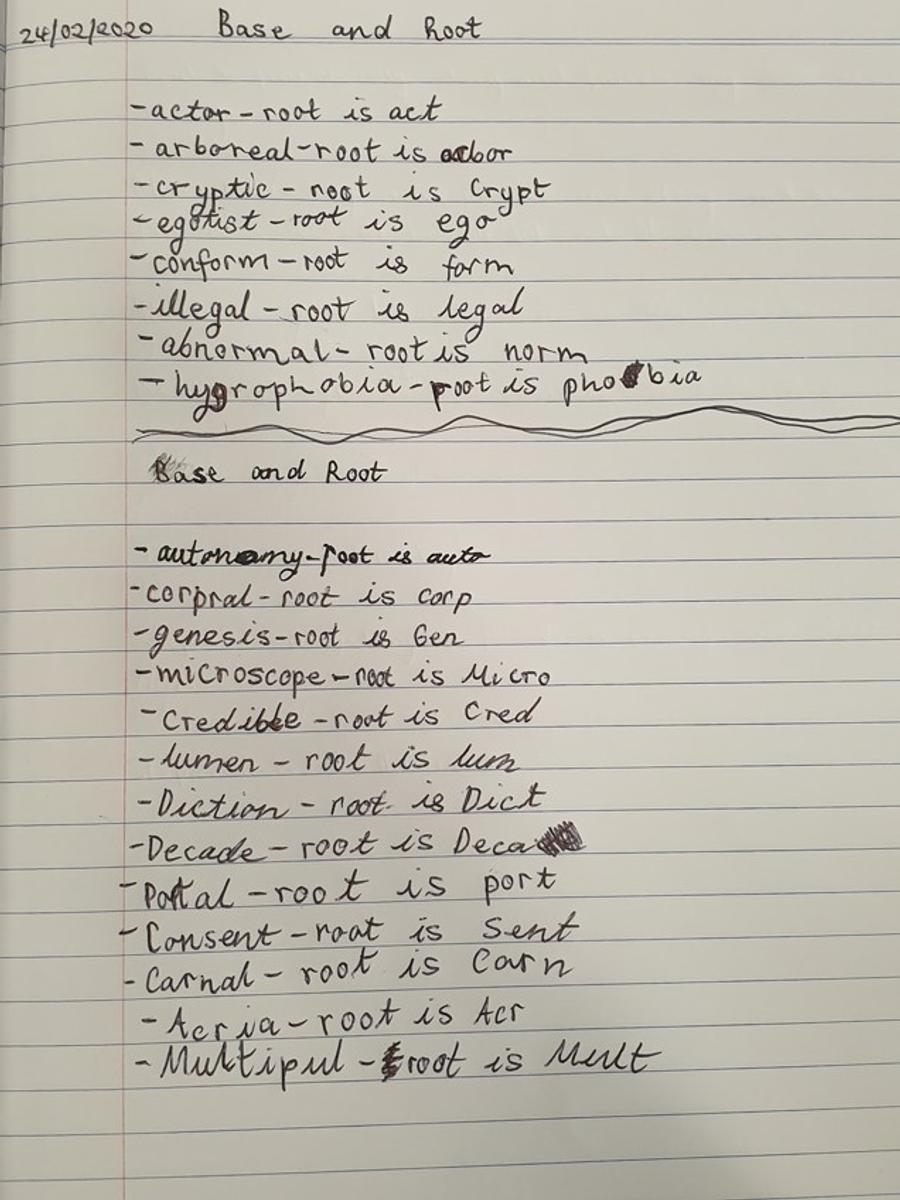 24/02/2020 Base and Root
-actor-root is act
-arboreal-root is arbor
-cryptic-root is Crypt
-egotist-root is ego
-conform-root is form
-illegal-root is legal
-abnormal-root is norm
-hygrophobia-root is phobia
Base and Root
-autonomy-root is auto
-corpral-root is corp
-genesis-root is Gen
-microscope-root is Micro
-Credible-root is Cred
-lumen-root is lum
-Diction-root is Dict
-Decade-root is Deca
-Portal-root is port
-Consent-root is Sent
-Carnal-root is Carn
-Acria-root is Acr
-Multipul-root is Mult